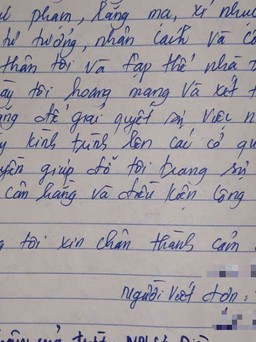 phạm, lăng mạ, xỉ nhục
tư tưởng, nhân cách và
thân tôi và tập thể nhà
tôi hoang mang và
để giải quyết sự việc
kính trình lên các cơ
giúp đỡ tôi trong sự
căn hàng và điều kiện công
tôi xin chân thành cảm
người viết đơn